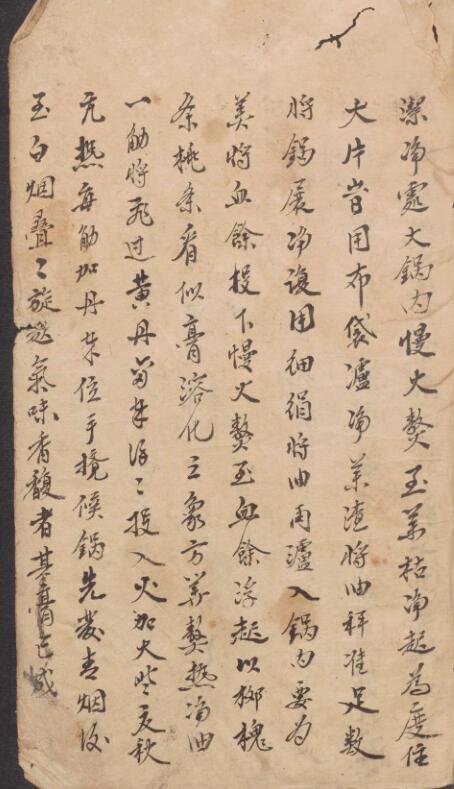 潔净處大鍋內慢火熬至薬枯净起為度住
大片皆用布袋濾净薬渣將油秤准足數
將鍋展净復用細絹將油再濾入鍋內要為
美將血餘投下慢火熬至血餘浮起以柳槐
条挑条看似膏溶化之象方美熬热净油
一觔將飛过黄丹 投入火加大些夏秋
亢热每觔加丹 手攪候鍋先發青烟後
至白烟叠〻旋起氣味香馥者其膏已成